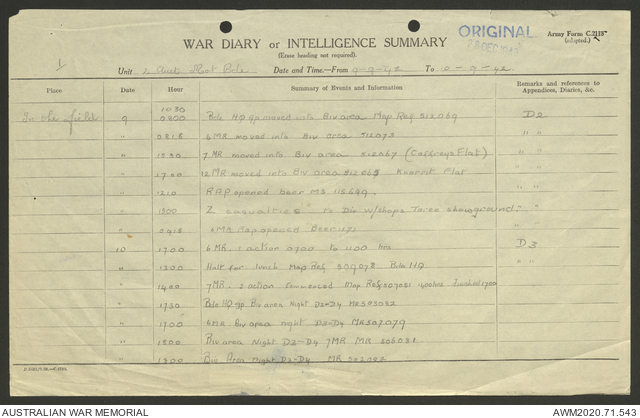 ORIGINAL
28 DEC 1942
Army Form C.2118
(adapted.)
WAR DIARY or INTELLIGENCE SUMMARY
(Erase heading not required).
Unit 2 Aust Mot Bde Date and Time—From 9-9-42 To 10-9-42
Place Date Hour Summary of Events and Information Remarks and references to Appendices, Diaries, &c.
1030
In the field 9 0800 Bde HQ gp moved into Biv area Map Ref 512069 D2
" 0815 6 MR moved into Biv area 512073 " "
" 1530 7 MR moved into Biv area 512067 ( Flat) " "
" 1730 12 MR moved into Biv area Flat " "
" 1210 RAP opened MS 115699
" 1500 2 casualties to Div w/shops Taree showground "
" 0918 MR Rap opened
10 1700 6 MR. 1 action 0700 to 1100 hrs D3
" 1200 Halt for lunch Map Ref 509078 Bde HQ " "
" 1400 7 MR. action commenced Map Ref 507081 1400hrs Finished 1700
" 1730 Bde HQ gp Biv area Night D3-D4 MR 503082
" 1700 6 MR Biv area night D3-D4 MR 507079
" 1800 Biv area Night D3-D4 7MR MR 505081
" 1800 Biv Area Night D3-D4 MR
AUSTRALIAN WAR MEMORIAL AWM2020.71.543